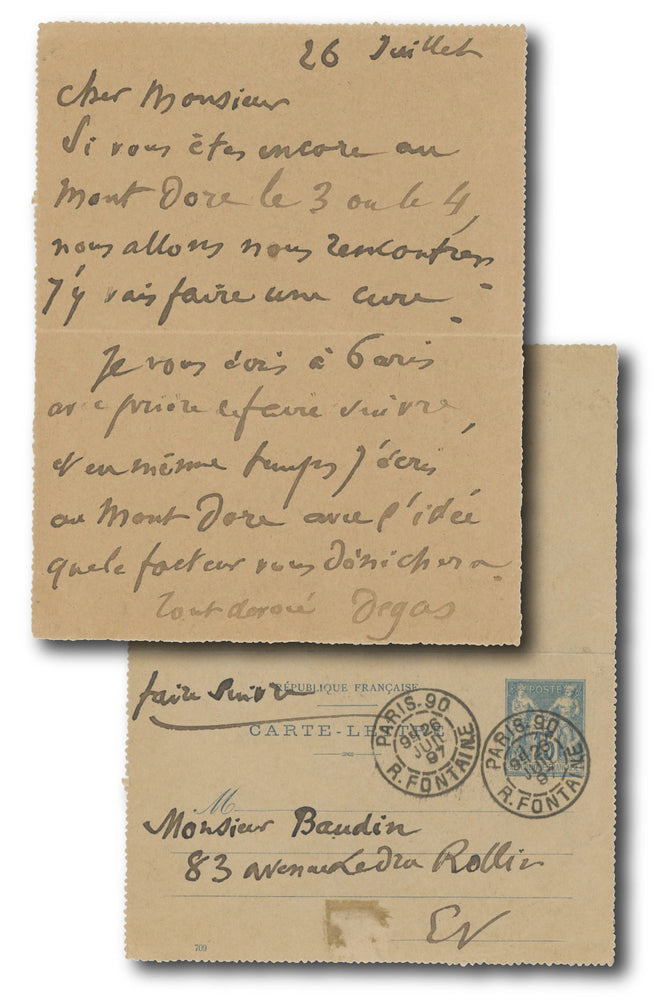 26 Juillet
Cher Monsieur
Si vous êtes encore au
Mont Dore le 3 ou le 4,
nous allons nous rencontrer
J'y vais faire une cure.
Je vous écris à Paris
avec prière de faire suivre,
et en même temps j'écris
au Mont Dore avec l'idée
que le facteur vous dénichera
Tout dévoué Degas
faire suivre
RÉPUBLIQUE FRANÇAISE
CARTE-LETTRE
POSTE
PARIS_90
26
JUIL
97
R. FONTAINE
PARIS_90
R. FONTAINE
M
Monsieur Baudin
83 avenue Ledru Rollin
EV
709